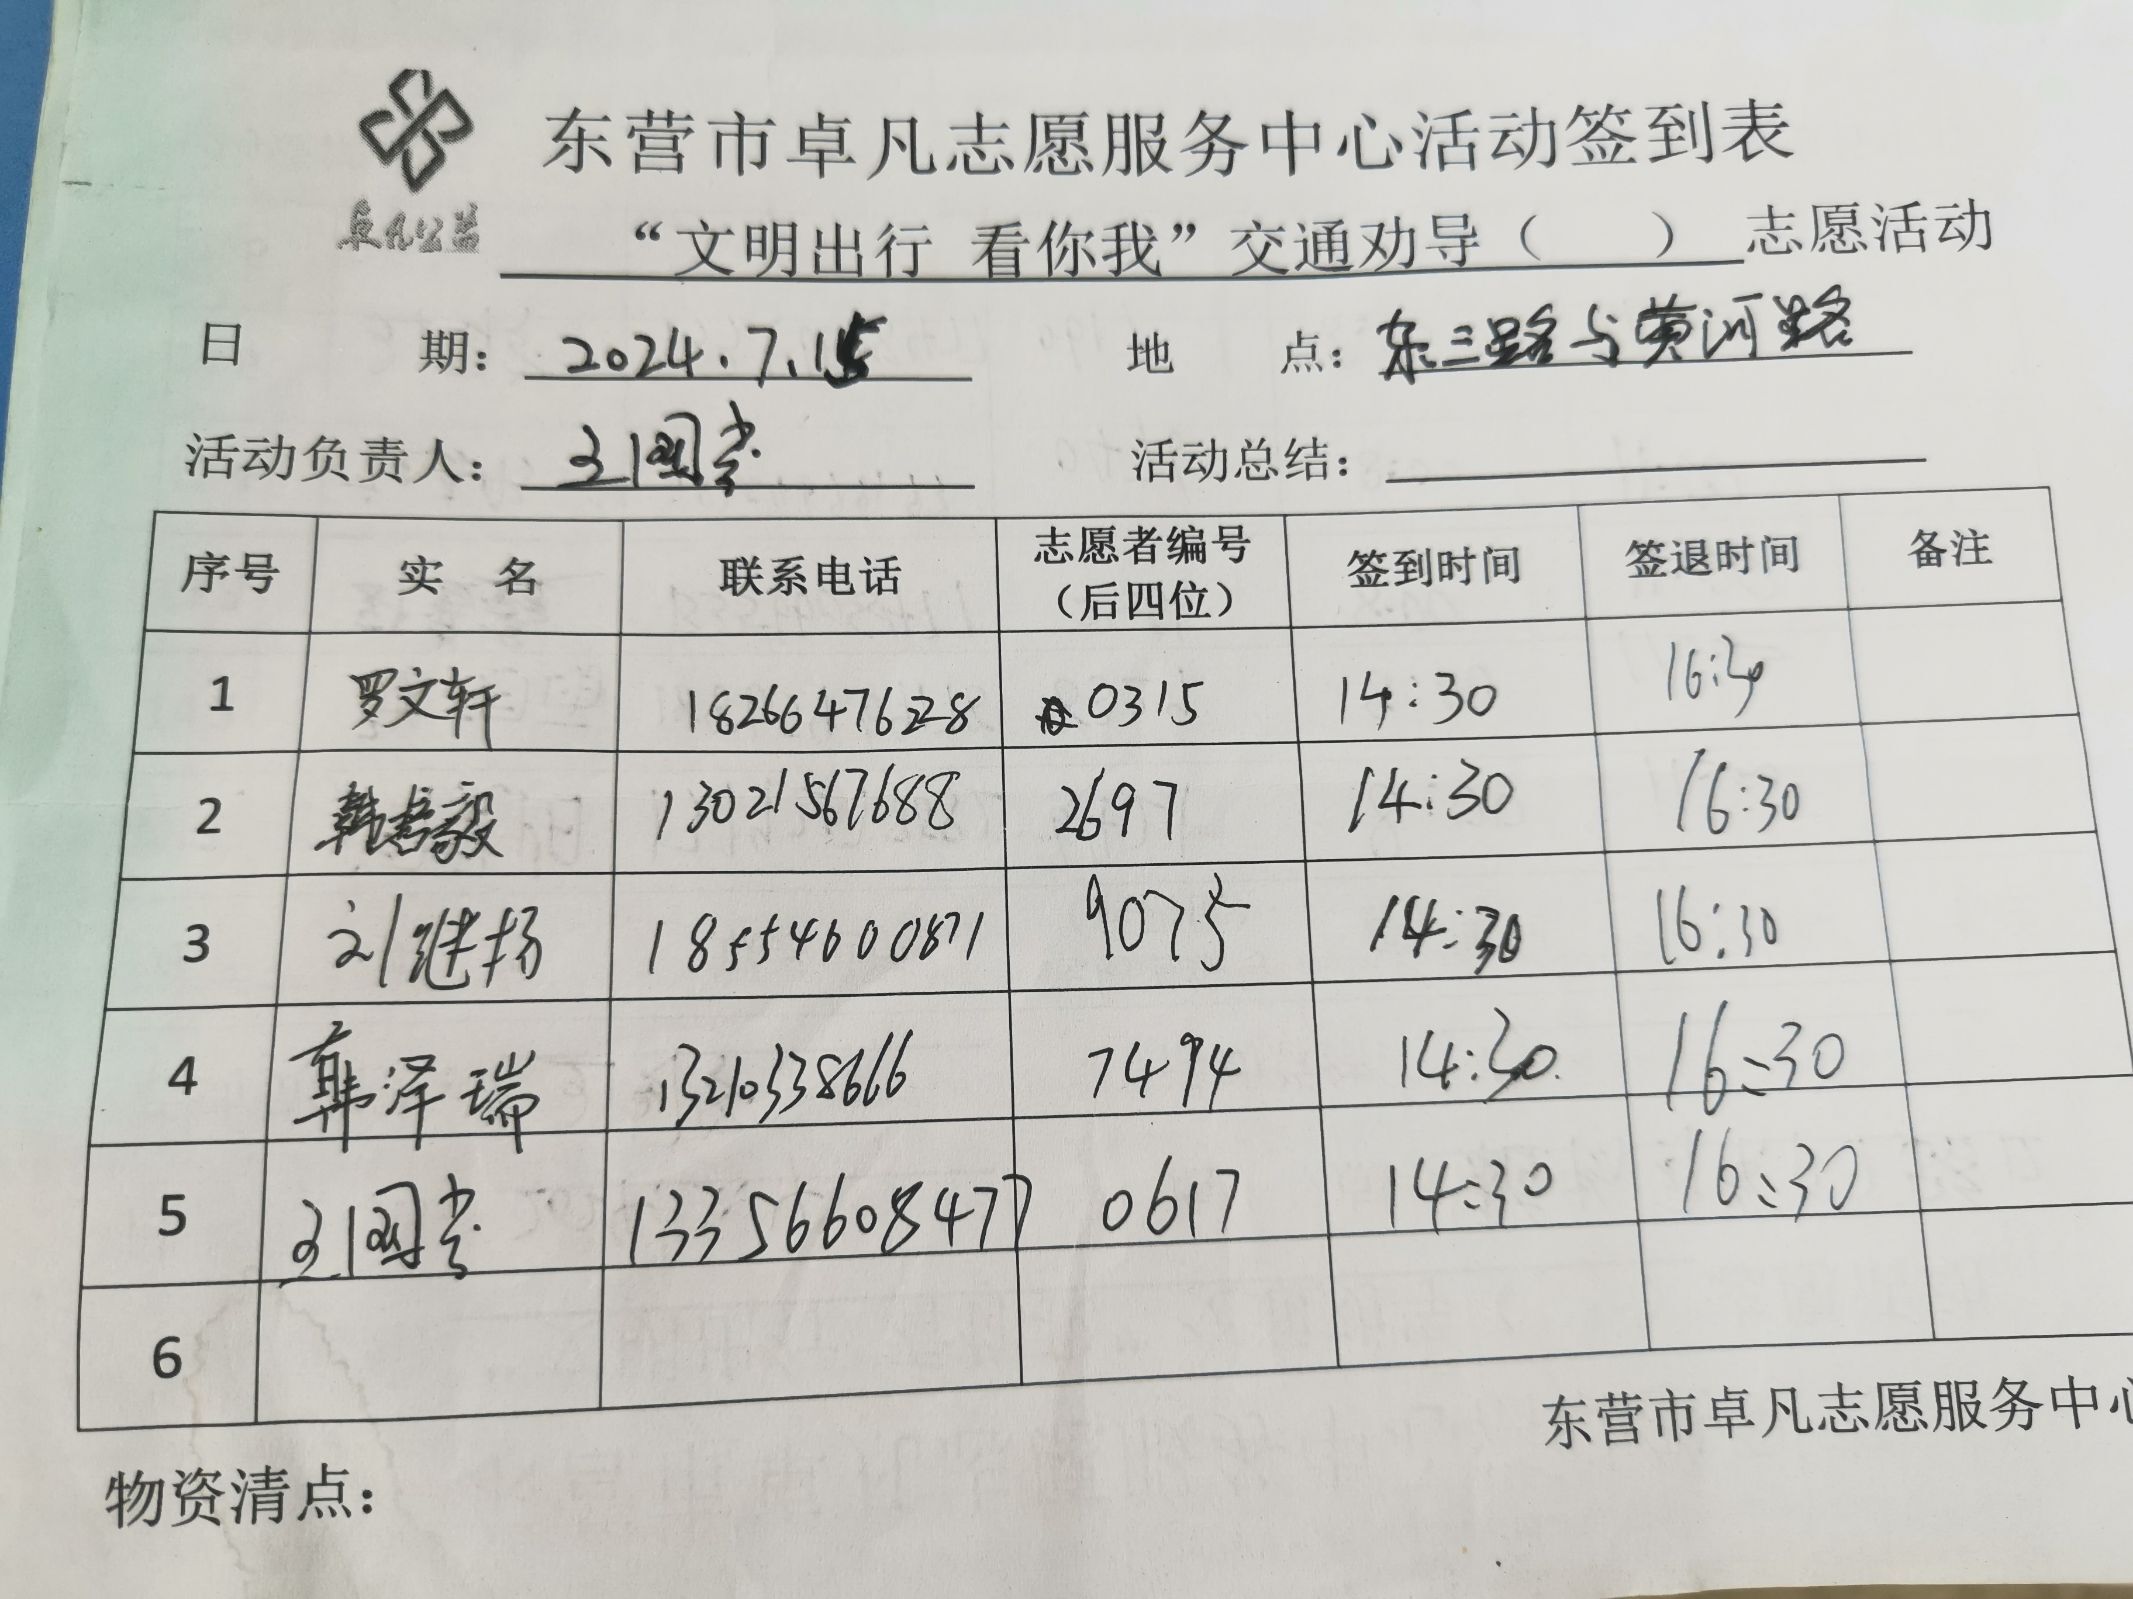 卓凡公益
东营市卓凡志愿服务中心活动签到表
“文明出行 看你我”交通劝导（ ）志愿活动
日 期：2024.7.15 地 点：东三路与黄河路
活动负责人： 活动总结：
序号 实 名 联系电话 志愿者编号（后四位） 签到时间 签退时间 备注
1 罗文轩 18266476228 0315 14:30 16:30
2 韩 毅 13021567688 2697 14:30 16:30
3 刘继扬 18554600871 9075 14:30 16:30
4 韩泽瑞 13210338666 7494 14:30 16:30
5 13356608477 0617 14:30 16:30
6
东营市卓凡志愿服务中心
物资清点：